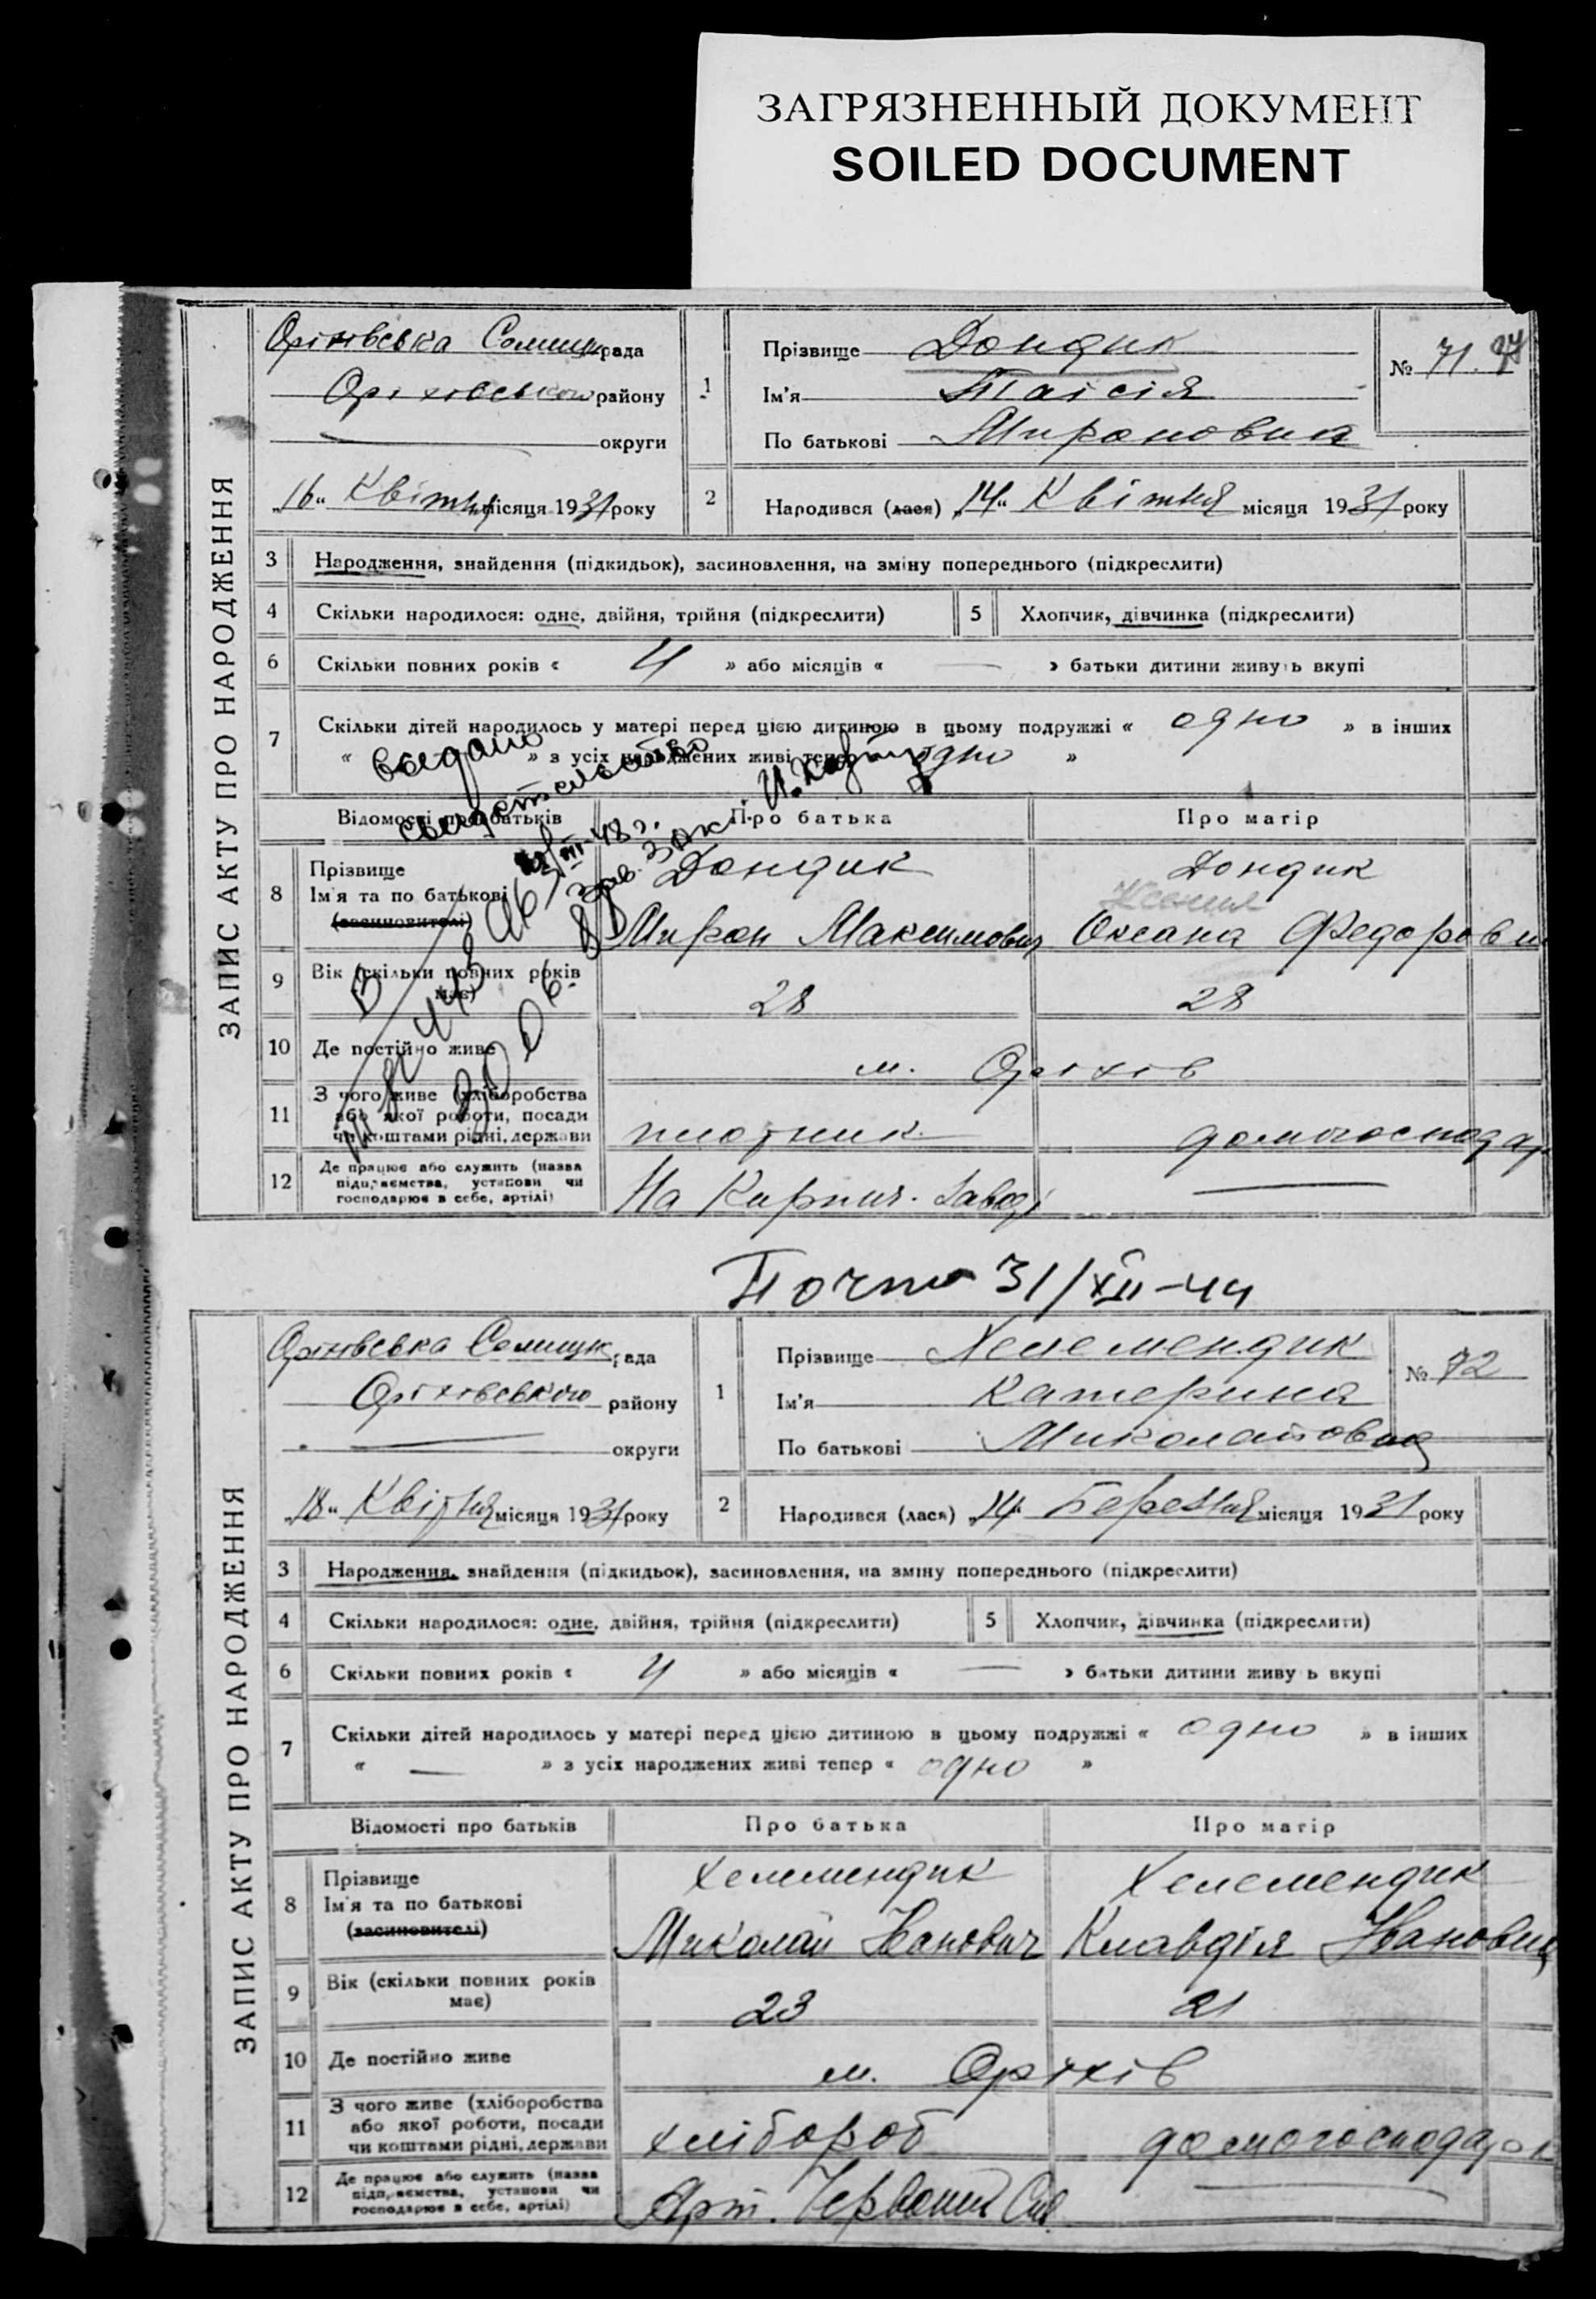 ЗАГРЯЗНЕННЫЙ ДОКУМЕНТ
SOILED DOCUMENT
ЗАПИС АКТУ ПРО НАРОДЖЕННЯ
Оріхівська Селищн рада
Оріхівського району
округи
"16" Квітня місяця 1931 року
1
Прізвище Дондик
Ім'я Таісія
По батькові Мироновна
№ 71.
2
Народився (лася) "14" Квітня місяця 1931 року
3 Народження, знайдення (підкидьок), засиновлення, на зміну попереднього (підкреслити)
4 Скільки народилося: одне, двійня, трійня (підкреслити) 5 Хлопчик, дівчинка (підкреслити)
6 Скільки повних років « 4 » або місяців « — » батьки дитини живуть вкупі
7 Скільки дітей народилось у матері перед цією дитиною в цьому подружжі « одно » в інших
« » з усіх народжених живі тепер одно »
Видано
свидетельство
Відомості про батьків Про батька Про матір
8 Прізвище Ім'я та по батькові (засиновителі)
Дондик Дондик
Ксения
Мирон Максимович Оксана Федоровн
9 Вік (скільки повних років має) 28 28
10 Де постійно живе м. Оріхів
11 З чого живе (хліборобства або якої роботи, посади чи коштами рідні, держави плотник домогосподар
12 Де працює або служить (назва підприємства, установи чи господарює в себе, артілі) На Кирпич. Заводі —
31/XII-44
ЗАПИС АКТУ ПРО НАРОДЖЕННЯ
Оріхівська Селищн рада
Оріхівського району
округи
"18" Квітня місяця 1931 року
1
Прізвище Хелемендик
Ім'я Катерина
По батькові Миколаівна
№ 72
2
Народився (лася) "14" Березня місяця 1931 року
3 Народження, знайдення (підкидьок), засиновлення, на зміну попереднього (підкреслити)
4 Скільки народилося: одне, двійня, трійня (підкреслити) 5 Хлопчик, дівчинка (підкреслити)
6 Скільки повних років « 4 » або місяців « — » батьки дитини живуть вкупі
7 Скільки дітей народилось у матері перед цією дитиною в цьому подружжі « одно » в інших
« — » з усіх народжених живі тепер « одно »
Відомості про батьків Про батька Про матір
8 Прізвище Ім'я та по батькові (засиновителі)
Хелемендик Хелемендик
Миколай Іванович Клавдія Івановна
9 Вік (скільки повних років має) 23 21
10 Де постійно живе м. Оріхів
11 З чого живе (хліборобства або якої роботи, посади чи коштами рідні, держави хлібороб домогосподарк
12 Де працює або служить (назва підприємства, установи чи господарює в себе, артілі) Арт. Червоний —